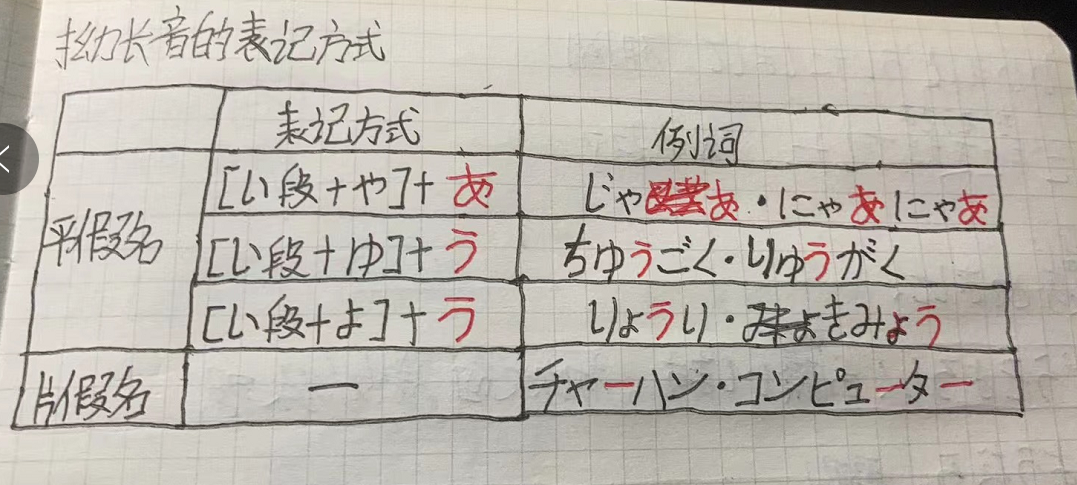 拗长音的表记方式
表记方式 例词
平假名
[い段+や]+あ じゃあ・にゃあにゃあ
[い段+ゆ]+う ちゅうごく・りゅうがく
[い段+よ]+う りょうり・きみょう
片假名 ー チャーハン・コンピューター